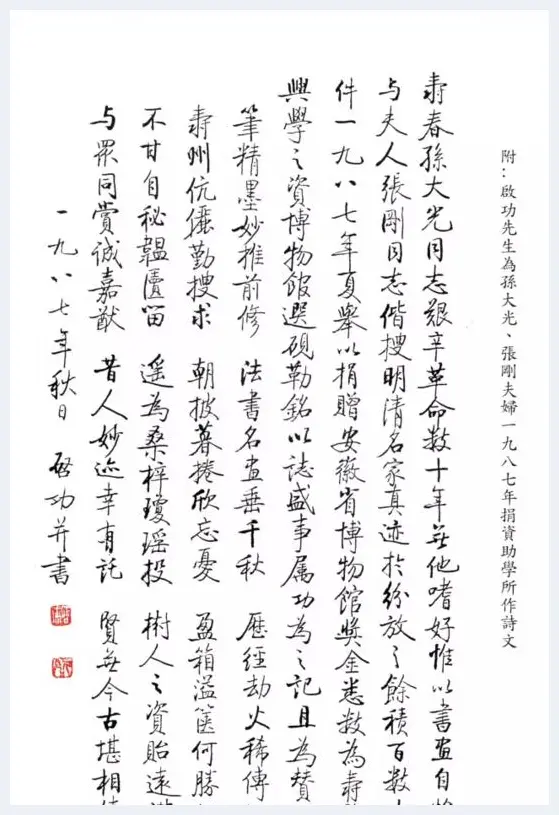 附：啟功先生為孫大光、張剛夫婦一九八七年捐資助學所作詩文
壽春孫大光同志艱辛革命數十年無他嗜好惟以書畫自
与夫人張剛同志偕搜明清名家真迹於紛放之餘積百數
件一九八七年夏舉以捐贈安徽省博物館獎金悉數為壽
興學之資博物館選硯勒銘以誌盛事属功為之記且為贊
筆精墨妙推前修 法書名畫垂千秋 歷經劫火稀傳
壽州伉儷勤搜求 朝披暮捲欣忘憂 盈箱溢篋何勝
不甘自秘韞匱留 遥為桑梓瓊瑶投 樹人之資貽遠
与眾同賞誠嘉猷 昔人妙迹幸有託 賢無今古堪相
一九八七年秋日 啓功并書